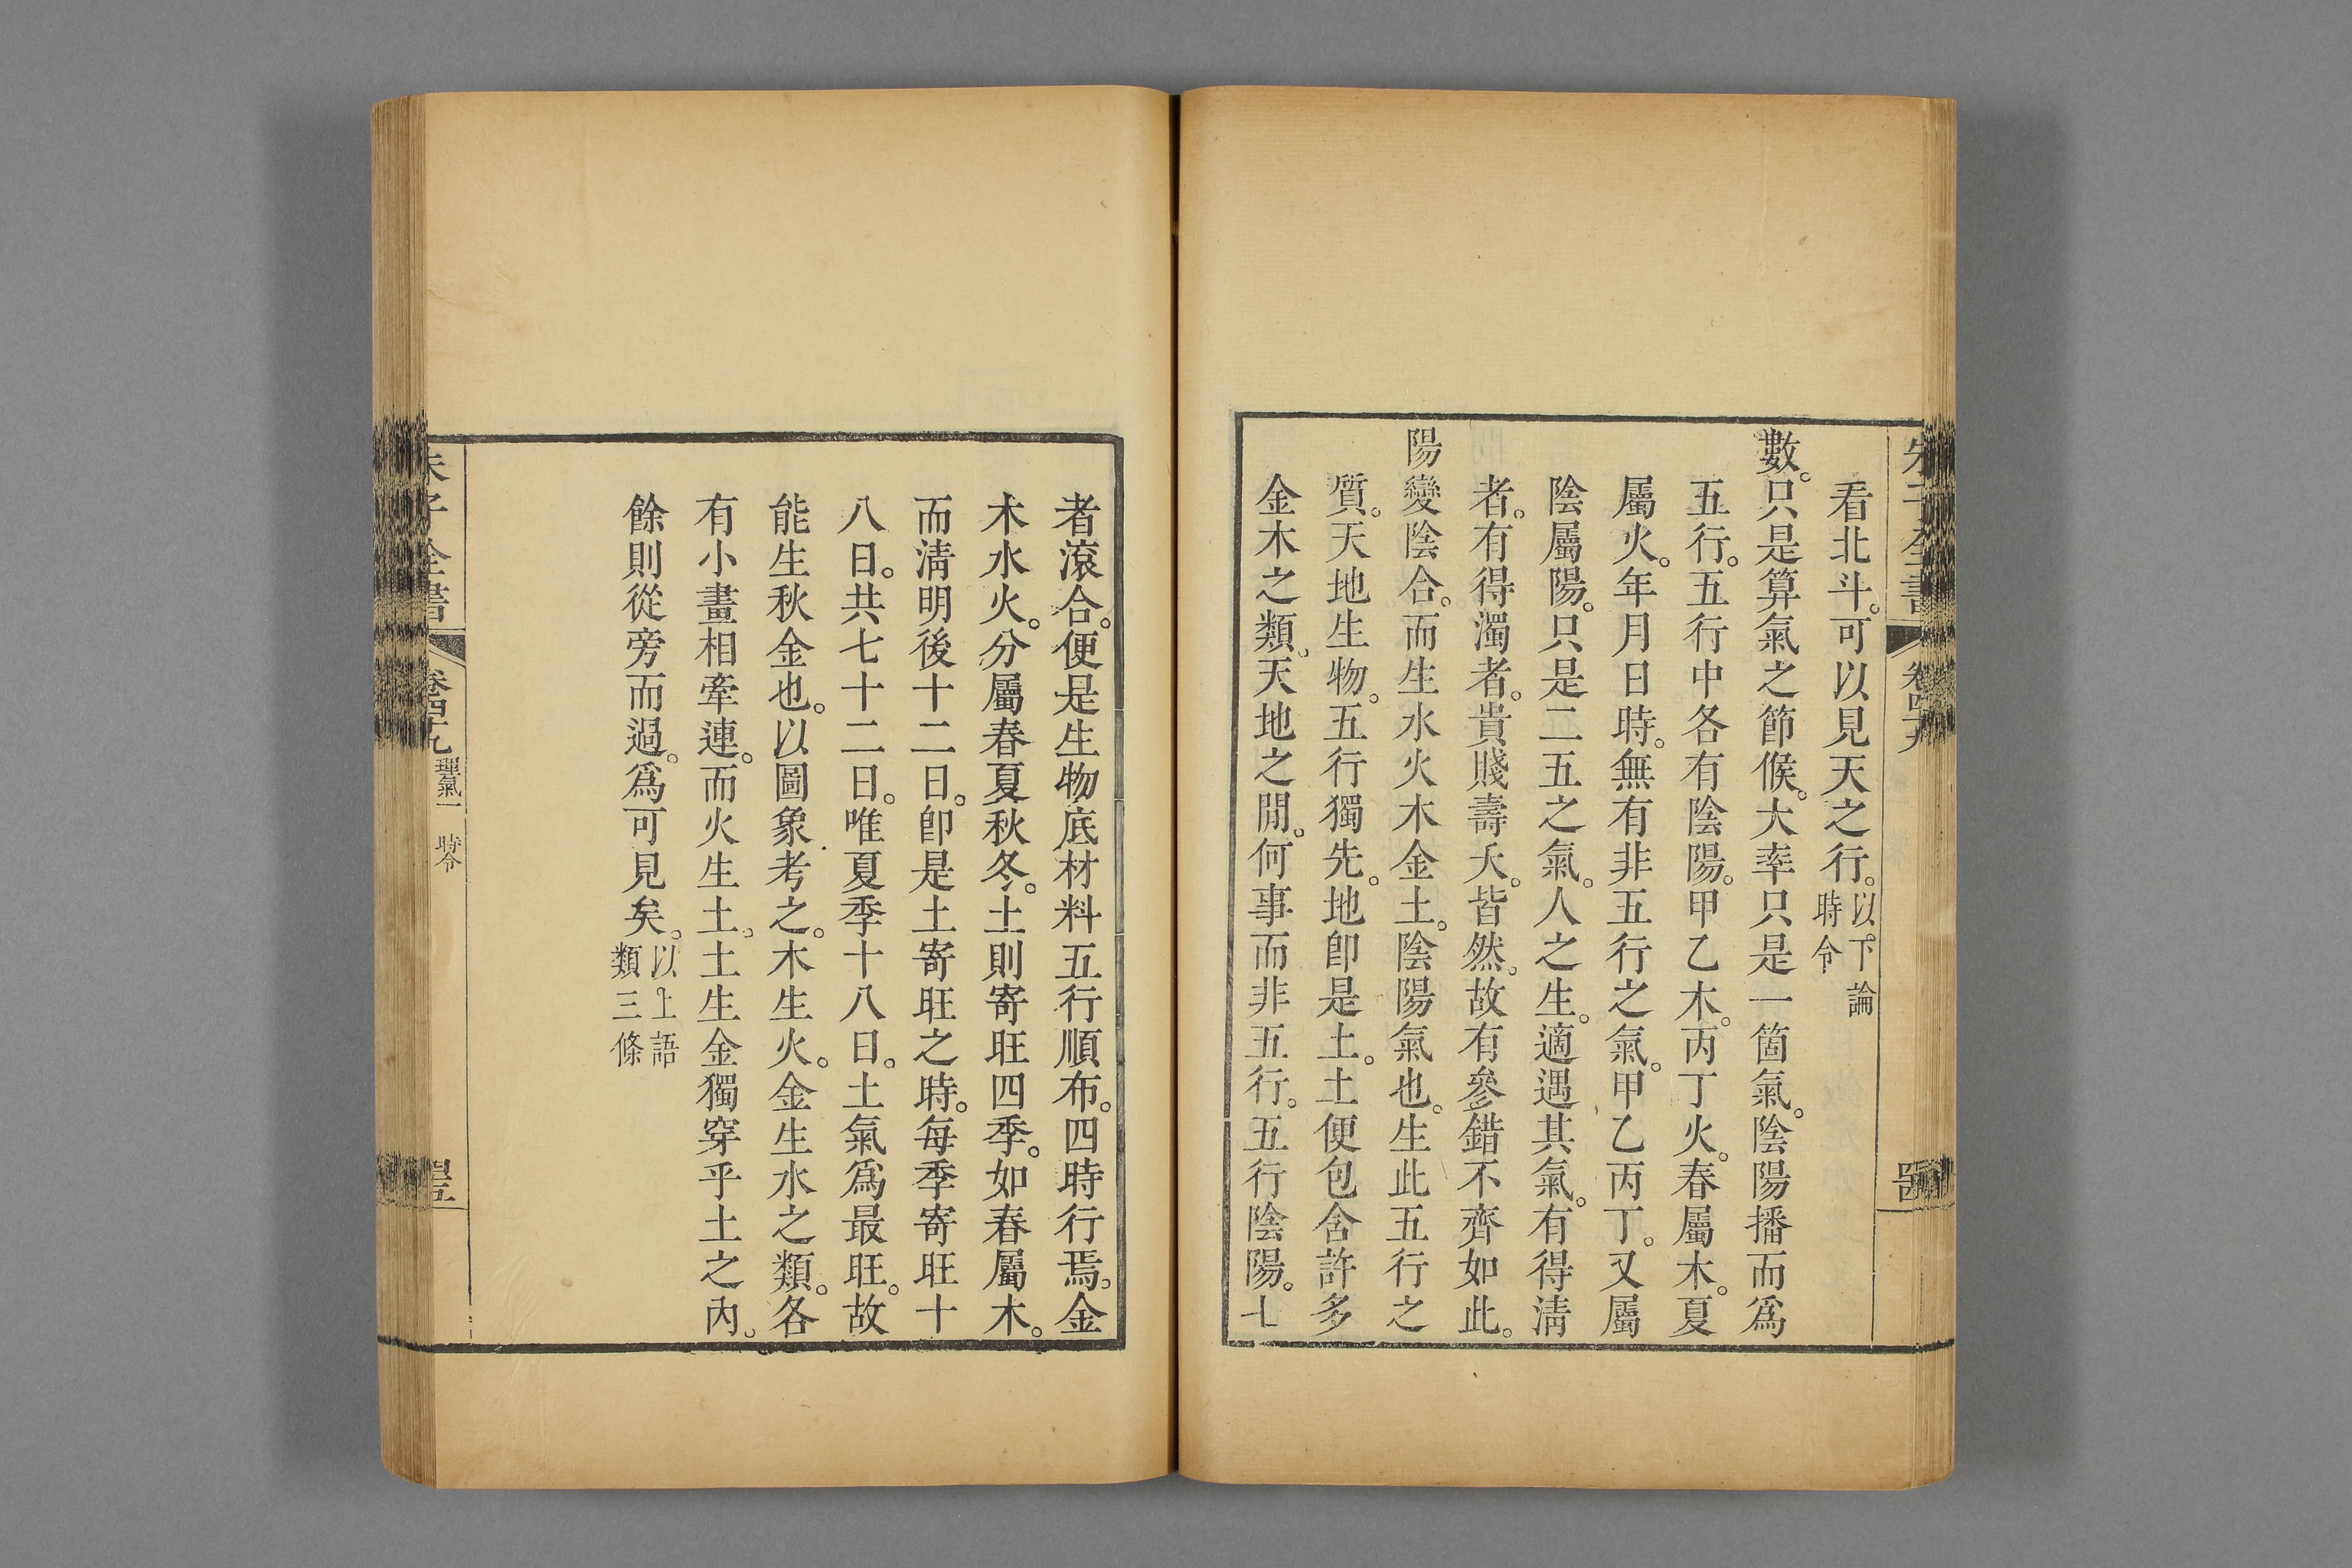 朱子全書 卷四十九
看北斗。可以見天之行。以下論時令
數。只是算氣之節候。大率只是一箇氣。陰陽播而爲
五行。五行中各有陰陽。甲乙木。丙丁火。春屬木。夏
屬火。年月日時。無有非五行之氣。甲乙丙丁。又屬
陰屬陽。只是二五之氣。人之生。適遇其氣。有得淸
者。有得濁者。貴賤壽夭。皆然。故有參錯不齊如此。
陽變陰合。而生水火木金土。陰陽氣也。生此五行之
質。天地生物。五行獨先。地卽是土。土便包含許多
金木之類。天地之閒。何事而非五行。五行陰陽。七
者滾合。便是生物底材料五行順布。四時行焉。金
木水火。分屬春夏秋冬。土則寄旺四季。如春屬木。
而淸明後十二日。卽是土寄旺之時。每季寄旺十
八日。共七十二日。唯夏季十八日。土氣爲最旺。故
能生秋金也。以圖象考之。木生火。金生水之類。各
有小畫相牽連。而火生土。土生金獨穿乎土之內。
餘則從旁而過。爲可見矣。以上語類三條
朱子全書 卷四十九 理氣一 時令